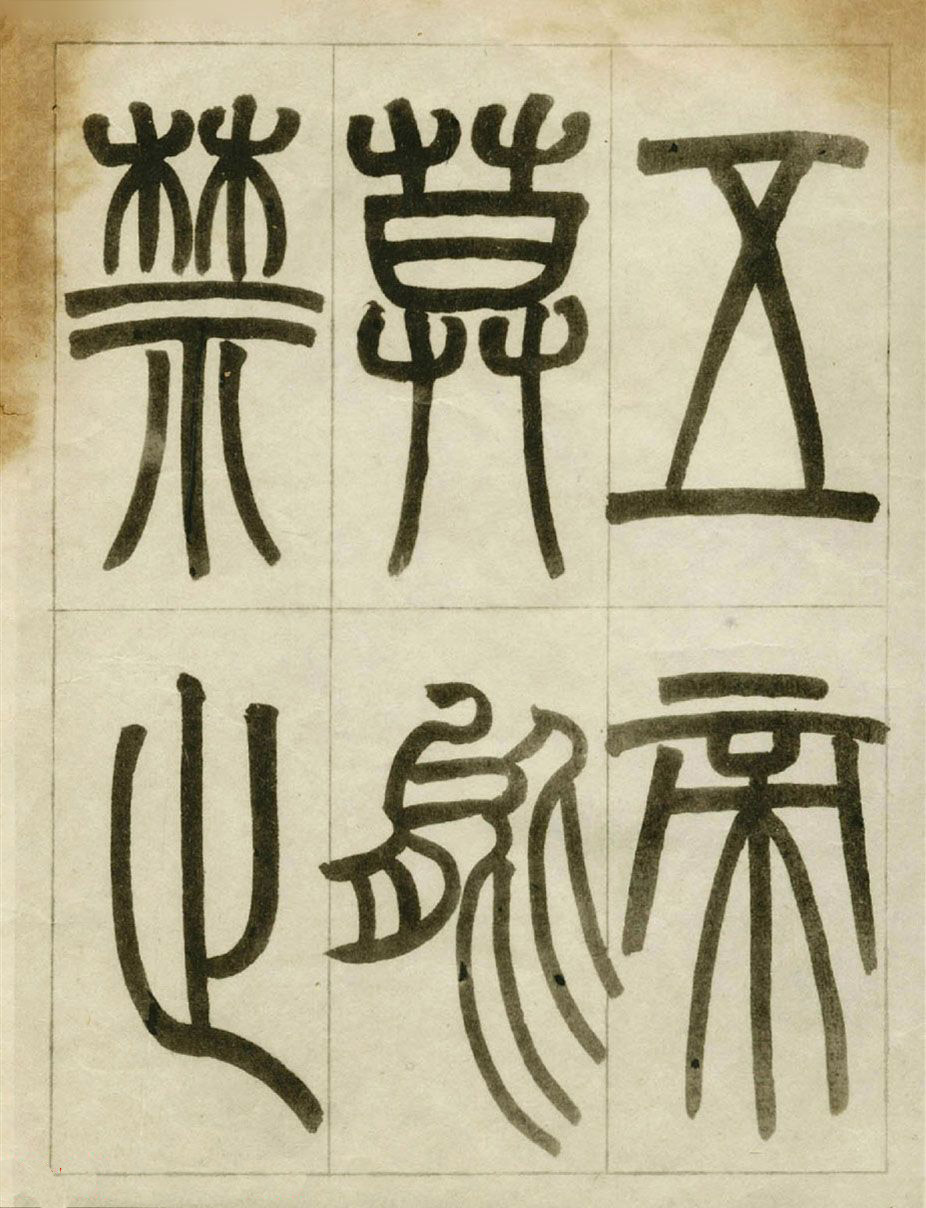 五帝
莫能
禁止